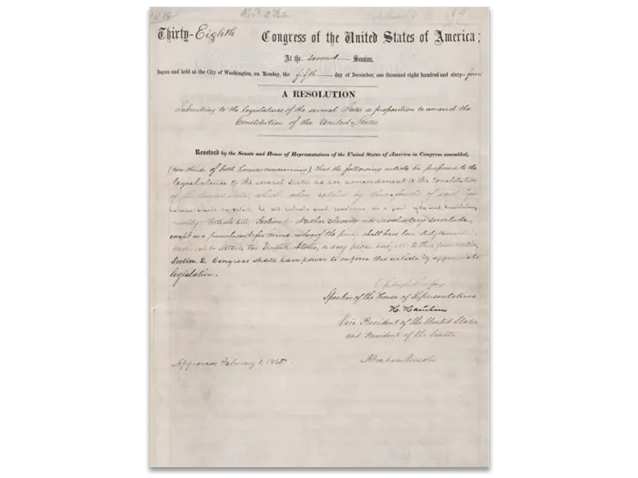 Thirty-Eighth Congress of the United States of America;
At the second Session,
Begun and held at the City of Washington, on Monday, the fifth day of December, one thousand eight hundred and sixty-four
A RESOLUTION
Submitting to the legislatures of the several States a proposition to amend the
Constitution of the United States
Resolved by the Senate and House of Representatives of the United States of America in Congress assembled,
(two thirds of both houses concurring), that the following article be proposed to the
legislatures of the several States as an amendment to the Constitution
of the United States, which when ratified by three fourths of said
Article XIII. Section 1. Neither slavery nor involuntary servitude,
except as a punishment for crime whereof the party shall have been duly
the United States, or any place subject to their jurisdiction
Section 2. Congress shall have power to enforce this article by appropriate
legislation.
Speaker of the House of Representatives
H. Hamlin
Vice President of the United States
and President of the Senate
Approved February 1, 1865
Abraham Lincoln